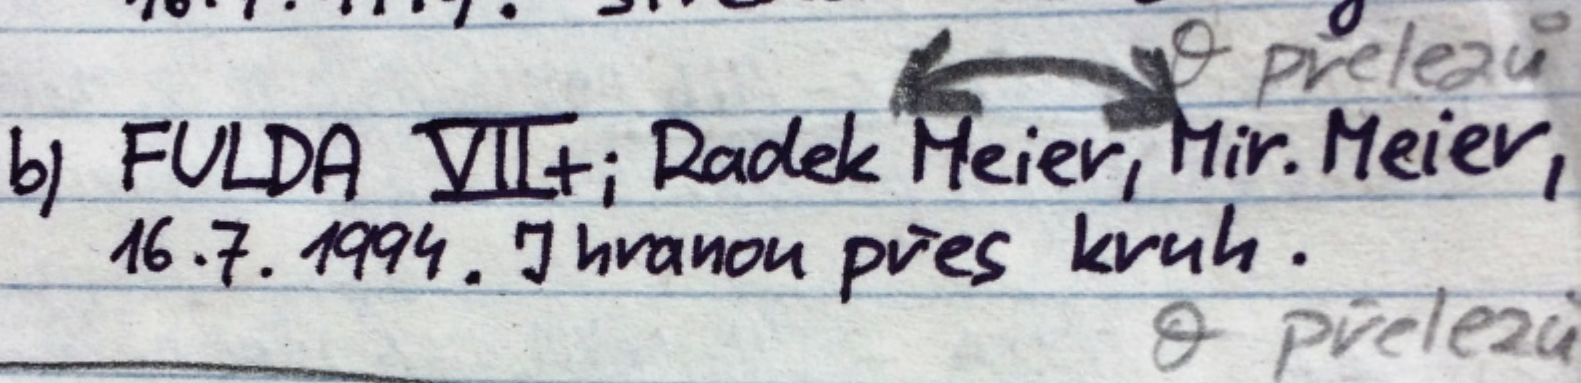 16.7.1994.
0 přelezů
b) FULDA VII+; Radek Meier, Mir. Meier,
16.7.1994. J hranou přes kruh.
0 přelezů